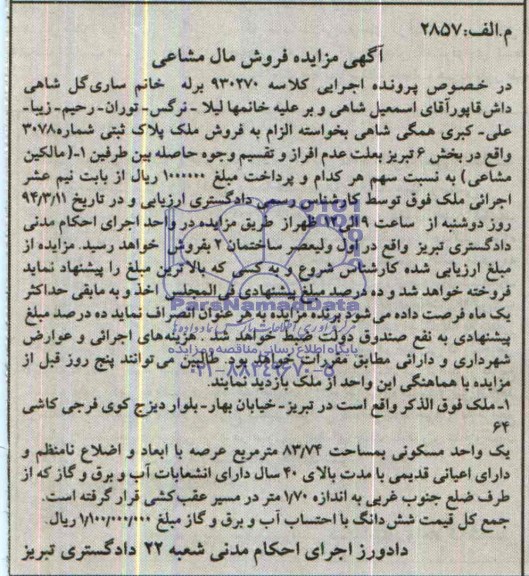 م.الف:۲۸۵۷
آگهی مزایده فروش مال مشاعی
در خصوص پرونده اجرایی کلاسه ۹۳۰۲۷۰ برله خانم ساری‌گل شاهی
داش قاپورآقای اسمعیل شاهی و بر علیه خانمها لیلا - نرگس- توران- رحیم- زیبا-
علی- کبری همگی شاهی بخواسته الزام به فروش ملک پلاک ثبتی شماره۳۰۷۸
واقع در بخش ۶ تبریز بعلت عدم افراز و تقسیم وجوه حاصله بین طرفین ۱-( مالکین
مشاعی) به نسبت سهم هر کدام و پرداخت مبلغ ۱۰۰۰۰۰۰ ریال از بابت نیم عشر
اجرائی ملک فوق توسط کارشناس رسمی دادگستری ارزیابی و در تاریخ ۹۴/۳/۱۱
روز دوشنبه از ساعت ۹ الی ۱۲ ظهراز طریق مزایده در واحد اجرای احکام مدنی
دادگستری تبریز واقع در اول ولیعصر ساختمان ۲ بفروش خواهد رسید. مزایده از
مبلغ ارزیابی شده کارشناس شروع و به کسی که بالاترین مبلغ را پیشنهاد نماید
فروخته خواهد شد و ده درصد مبلغ پیشنهادی فی المجلس اخذ و به مابقی حداکثر
یک ماه فرصت داده می شود برنده مزایده به هر عنوان انصراف نماید ده درصد مبلغ
پیشنهادی به نفع صندوق دولت ضبط خواهد شد . هزینه‌های اجرائی و عوارض
شهرداری و دارائی مطابق مقررات خواهد بود. طالبین می توانند پنج روز قبل از
مزایده با هماهنگی این واحد از ملک بازدید نمایند.
۱-ملک فوق الذکر واقع است در تبریز-خیابان بهار-بلوار دیزج کوی فرجی کاشی
۶۴
یک واحد مسکونی بمساحت ۸۳/۷۴ مترمربع عرصه با ابعاد و اضلاع نامنظم و
دارای اعیانی قدیمی با مدت بالای ۴۰ سال دارای انشعابات آب و برق و گاز که از
طرف ضلع جنوب غربی به اندازه ۱/۷۰ متر در مسیر عقب‌کشی قرار گرفته است.
جمع کل قیمت شش‌دانگ با احتساب آب و برق و گاز مبلغ ۱/۱۰۰/۰۰۰/۰۰۰ ریال.
دادورز اجرای احکام مدنی شعبه ۲۲ دادگستری تبریز
ParsNamadData
پایگاه اطلاع رسانی مناقصه و مزایده
۰۲۱-۸۸۳۴۹۶۷۰-۵